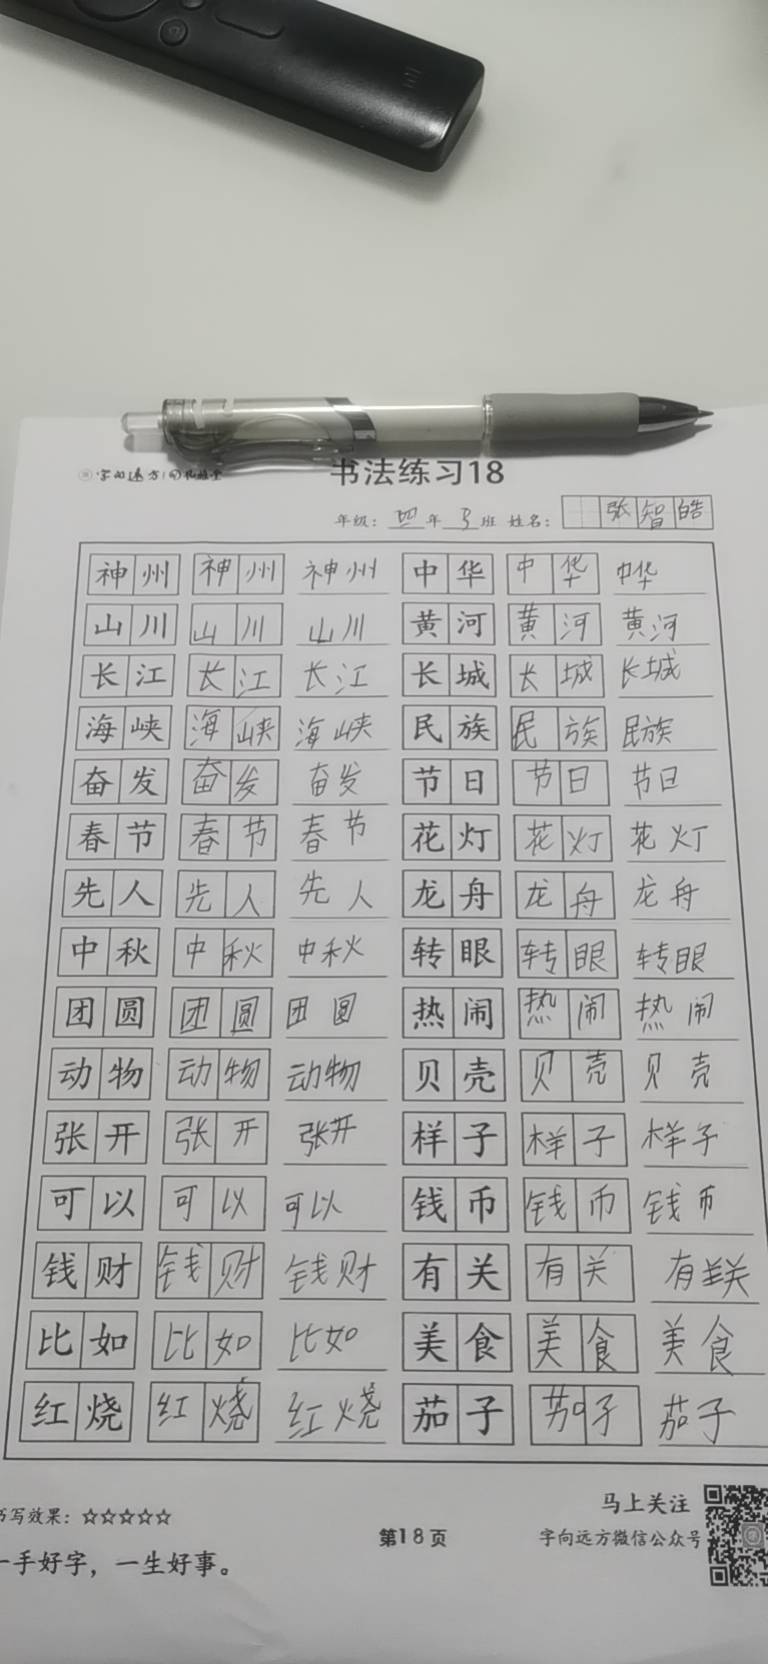 书法练习18
年级：四年3班 姓名：张智皓
神州 神州 神州 中华 中华 中华
山川 山川 山川 黄河 黄河 黄河
长江 长江 长江 长城 长城 长城
海峡 海峡 海峡 民族 民族 民族
奋发 奋发 奋发 节日 节日 节日
春节 春节 春节 花灯 花灯 花灯
先人 先人 先人 龙舟 龙舟 龙舟
中秋 中秋 中秋 转眼 转眼 转眼
团圆 团圆 团圆 热闹 热闹 热闹
动物 动物 动物 贝壳 贝壳 贝壳
张开 张开 张开 样子 样子 样子
可以 可以 可以 钱币 钱币 钱币
钱财 钱财 钱财 有关 有关 有关
比如 比如 比如 美食 美食 美食
红烧 红烧 红烧 茄子 茄子 茄子
书写效果：☆☆☆☆☆
一手好字，一生好事。
第18页
马上关注
字向远方微信公众号